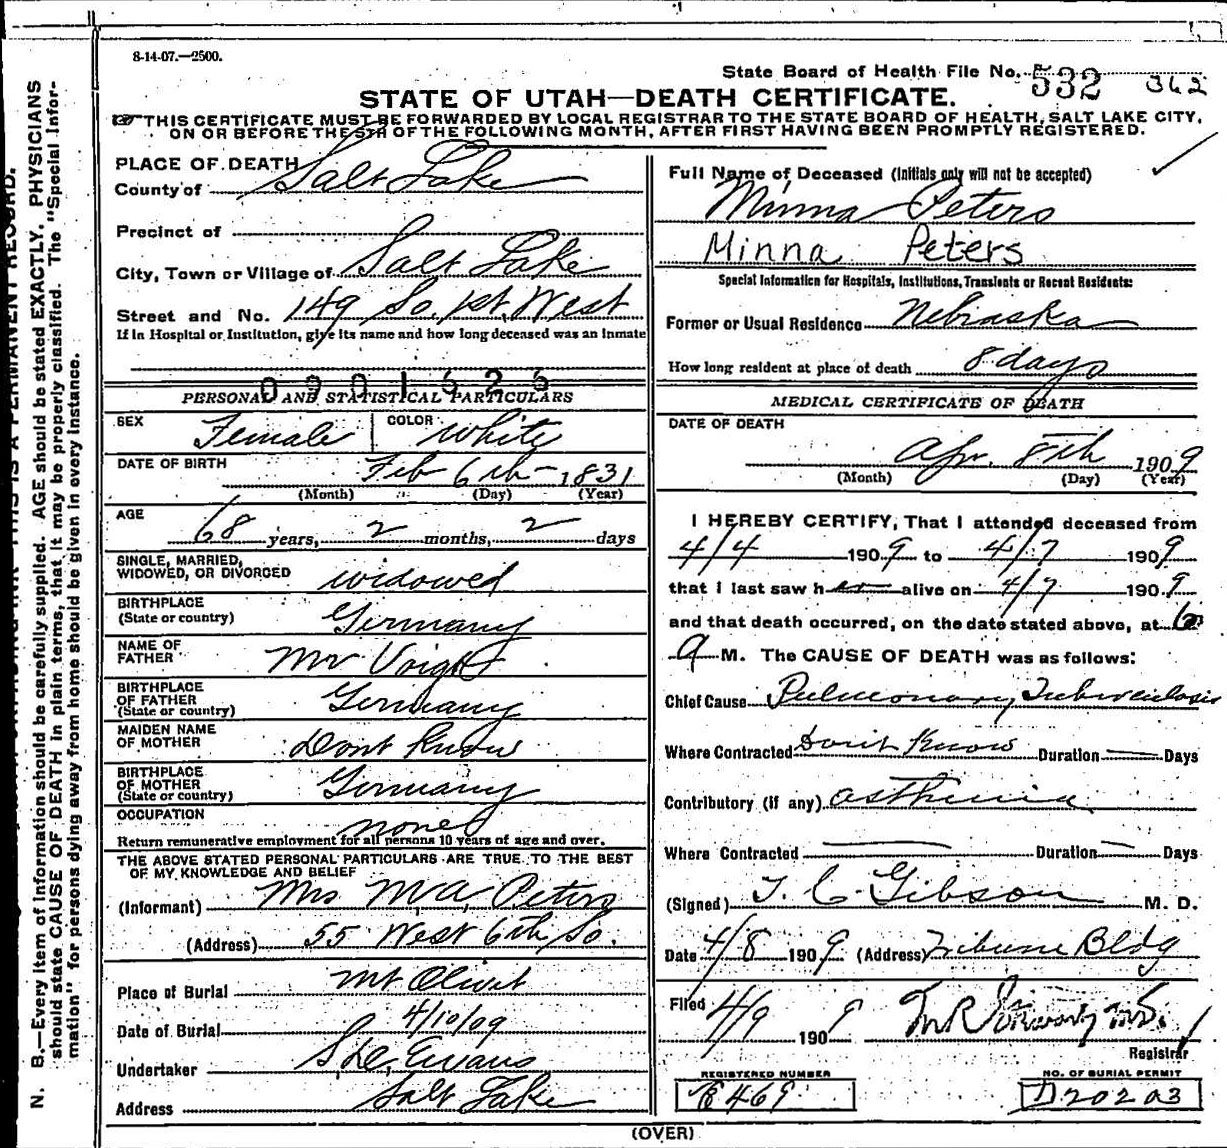 8-14-07.—2500.
State Board of Health File No. 532 362
STATE OF UTAH—DEATH CERTIFICATE.
☞ THIS CERTIFICATE MUST BE FORWARDED BY LOCAL REGISTRAR TO THE STATE BOARD OF HEALTH, SALT LAKE CITY,
ON OR BEFORE THE 5TH OF THE FOLLOWING MONTH, AFTER FIRST HAVING BEEN PROMPTLY REGISTERED.
N. B.—Every item of information should be carefully supplied. AGE should be stated EXACTLY. PHYSICIANS
should state CAUSE OF DEATH in plain terms, that it may be properly classified. The "Special Infor-
mation" for persons dying away from home should be given in every instance.
THIS IS A PERMANENT RECORD.
PLACE OF DEATH
County of Salt Lake
Precinct of
City, Town or Village of Salt Lake
Street and No. 149 So. 1st West
If in Hospital or Institution, give its name and how long deceased was an inmate
0901626
PERSONAL AND STATISTICAL PARTICULARS
SEX Female COLOR White
DATE OF BIRTH Feb 6th 1831
(Month) (Day) (Year)
AGE
68 years, 2 months, 2 days
SINGLE, MARRIED,
WIDOWED, OR DIVORCED widowed
BIRTHPLACE
(State or country) Germany
NAME OF
FATHER Mr Voight
BIRTHPLACE
OF FATHER
(State or country) Germany
MAIDEN NAME
OF MOTHER Dont Know
BIRTHPLACE
OF MOTHER
(State or country) Germany
OCCUPATION none
Return remunerative employment for all persons 10 years of age and over.
THE ABOVE STATED PERSONAL PARTICULARS ARE TRUE TO THE BEST
OF MY KNOWLEDGE AND BELIEF
(Informant) Mrs M.A. Peters
(Address) 55 West 6th So.
Place of Burial Mt Olivet
Date of Burial 4/10/09
Undertaker Evans
Address Salt Lake
Full Name of Deceased (Initials only will not be accepted)
Minna Peters
Minna Peters
Special Information for Hospitals, Institutions, Transients or Recent Residents:
Former or Usual Residence Nebraska
How long resident at place of death 8 days
MEDICAL CERTIFICATE OF DEATH
DATE OF DEATH
Apr. 8th 1909
(Month) (Day) (Year)
I HEREBY CERTIFY, That I attended deceased from
4/4 1909 to 4/7 1909
that I last saw her alive on 4/7 1909
and that death occurred, on the date stated above, at 6
a M. The CAUSE OF DEATH was as follows:
Chief Cause Pulmonary Tuberculosis
Where Contracted Don't Know Duration — Days
Contributory (if any) asthenia
Where Contracted — Duration — Days
(Signed) T. C. Gibson M. D.
Date 4/8 1909 (Address) Tribune Bldg
Filed 4/9 1909
Registrar
REGISTERED NUMBER
469
NO. OF BURIAL PERMIT
D20203
(OVER)